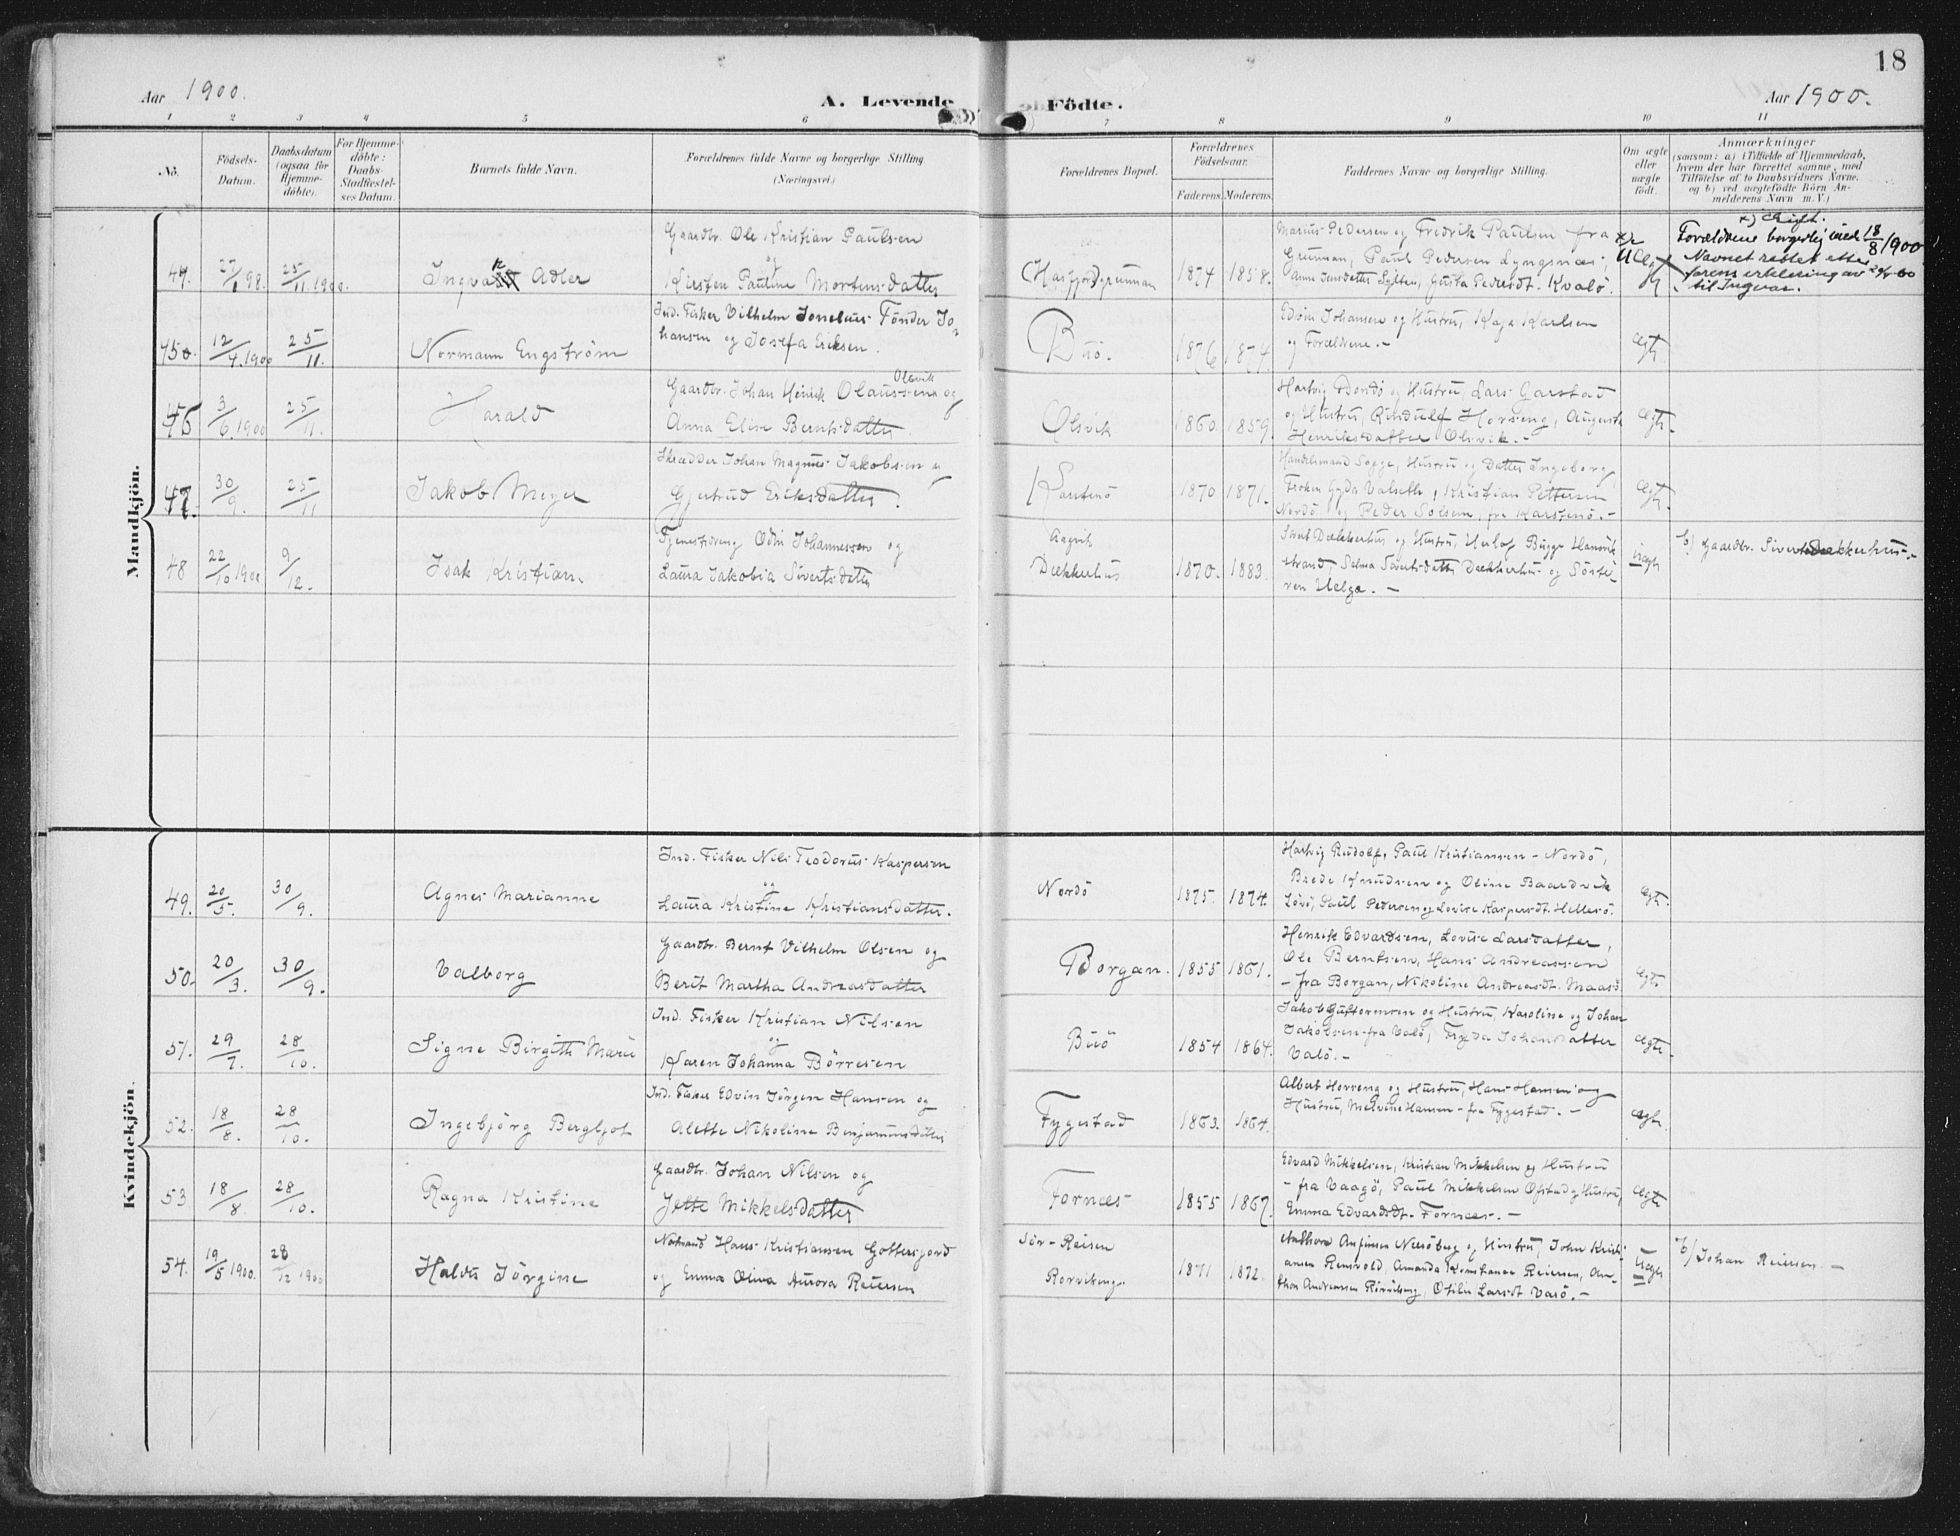 18
Aar 1900.
A. Levende
Födte.
Aar 1900.
1 2 3 4 5 6 7 8 9 10 11
No.
Födsels-
Datum.
Daabsdatum
(ogsaa for
Hjemme-
döbte).
For Hjemme-
döbte:
Daabs-
Stadfæstel-
ses Datum.
Barnets fulde Navn.
Forældrenes fulde Navne og borgerlige Stilling
(Næringsvei.)
Forældrenes Bopæl.
Forældrenes
Födselsaar.
Faderens. Moderens.
Faddernes Navne og borgerlige Stilling.
Om ægte
eller
uægte
födt.
Anmærkninger
(saasom: a) i Tilfælde af Hjemmedaab,
hvem der har forrettet samme, med
Tilföielse af to Daabsvidners Navne,
og b) ved uægtefödte Börn An-
melderens Navn m. V.)
Mandkjön.
44. 27/1 98. 25/11 1900. Ingvar Adler
Gaardbr. Ole Kristian Paulsen
og
Kirsten Pauline Mortensdatter
Hasfjordgrunnan 1874 1858.
Marius Pedersen og Fredrik Paulsen fra
Grunnan, Paul Pedersen Lyngsnæs,
Anna Jensdatter Sylten, Gusta Pedersdt. Kvalö.
x) Gift.
Forældrene borgerlig viet 18/8 1900
Navnet rettet efter
farens erklæring av
til Ingvar.
45. 12/4 1900 25/11. Normann Engström
Ind. Fisker Vilhelm Fönder Jo-
hansen og Josefa Eriksen.
Buö. 1876 1874.
Edvin Johansen og Hustru, Kaja Karlsen
og Forældrene. -
ægte.
46 3/6 1900 25/11. Harald
Gaardbr. Johan Henrik Olaussen Olsvik og
Anna Elise Berntsdatter.
Olsvik 1860. 1859.
Hartvig Dondö og Hustru, Lars Garstad
og Hustru, Rindulf Horseng, Augusta
Henriksdatter Olsvik. -
ægte.
47. 30/9. 25/11 Jakob Meyer
Skrædder Johan Magnus Jakobsen og
Gjertrud Eriksdatter.
Karstenö 1870 1871.
Handelsmand Sopge, Hustru og Datter Ingeborg,
Fröken Gyda Valseth, Kristian Pettersen
Nordö og Peder Solsem, fra Karstenö. -
ægte.
48 22/10 1900 9/12. Isak Kristian
Tjenestedreng Odin Johannessen og
Laura Jakobia Sivertsdatter
Aagvik
Dækkerhus 1870. 1883.
Sivert Dækkerhus og Hustru, Herlof Bugge Hansvik
strand, Selma Sivertsdatter Dækkerhus og Söste-
ren Helga. -
Uægte
b) Gaardbr. Sivert Dækkerhus. -
Kvindekjön.
49. 20/5. 30/9. Agnes Marianne
Ind. Fisker Nils Teodorus Kaspersen
og
Laura Kristine Kristiansdatter.
Nordö 1875. 1874.
Hartvig Rudolf, Paul Kristiansen - Nordö,
Brede Knudsen og Oline Baardvik
Lövö, Paul Pedersen og Lovise Kaspersdt. Hellesö.
ægte.
50. 20/3. 30/9. Valborg
Gaardbr. Bernt Vilhelm Olsen og
Berit Martha Andreasdatter
Borgan. 1855 1861.
Henrik Edvardsen, Lovise Larsdatter,
Ole Berntsen, Hans Andreassen
- fra Borgan, Nikoline Andreasdt. Maasö
ægte
51. 29/7. 28/10. Signe Birgith Marie
Ind. Fisker Kristian Nilsen
og
Karen Johanna Börresen
Buö 1854 1864.
Jakob Guttormsen og Hustru, Karoline og Johan
Jakobsen - fra Valö, Frida Johansdatter
Valö. -
ægte.
52. 18/8. 28/10. Ingebjörg Bergljot
Ind. Fisker Edvin Jörgen Hansen og
Alette Nikoline Benjaminsdatter
Fygestad 1863. 1864.
Albert Horseng og Hustru, Hans Hansen og
Hustru, Melvine Hansen - fra Fygestad. -
ægte.
53 18/8. 28/10. Ragna Kristine
Gaardbr. Johan Nilsen og
Jette Mikkelsdatter
Fornæs 1855 1867.
Edvard Mikkelsen, Kristian Mikkelsen og Hustru
- fra Vaagö, Paul Mikkelsen Ofstad og Hustru,
Emma Edvardsdt. Fornæs. -
ægte
54. 19/5 1900. 28/12 1900 Haldis Jörgine
Notmand Hans Kristiansen Gottersjord
og Emma Oliva Aurora Reiersen
Sör-Reisen
Rorvikenge 1871 1872.
Anthon Nilsöberg og Hustru, John Kristi-
ansen Remvold, Amanda Konstance Reiersen, An-
thon Andreassen Rörvikeng, Otilie Larsdt. Valö. -
Uægte
b) Johan Reiersen. -